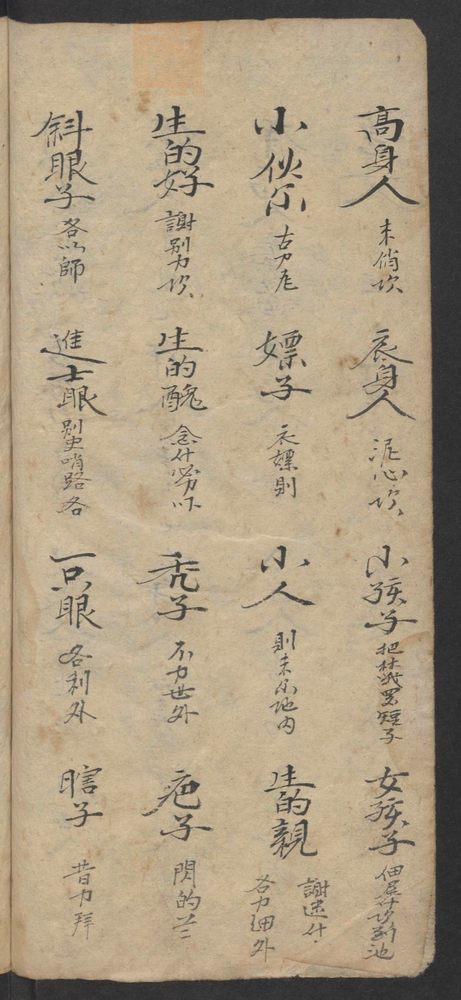 高身人 未俏坎
衣身人 泥心坎
小孩子 把林我罢短子
女孩子 佃
小伙尔 古力尼
嫖子 衣嫖則
小人 則未尔地内
生的親 謝迷什 各力細外
生的好 謝别力坎
生的醜 念什勞以
秃子 不力世外
疤子 閃的芒
斜眼子 各以師
進士眼 别史哨路各
一只眼 各利外
瞎子 昔力拜